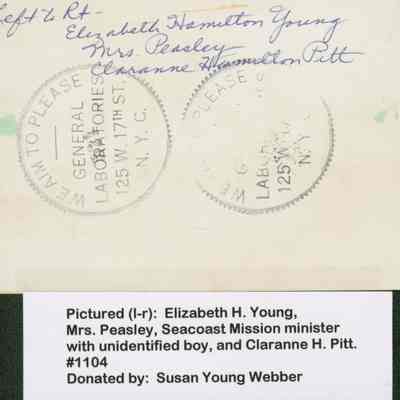 Left to Rt -
Elizabeth Hamilton Young
Mrs Peasley
Claranne Hamilton Pitt
WE AIM TO PLEASE
GENERAL
LABORATORIES
125 W. 17TH ST.
N. Y. C.
PLEASE
WE
G
LABO
125 W. 17
N. Y.
Pictured (l-r): Elizabeth H. Young,
Mrs. Peasley, Seacoast Mission minister
with unidentified boy, and Claranne H. Pitt.
#1104
Donated by: Susan Young Webber